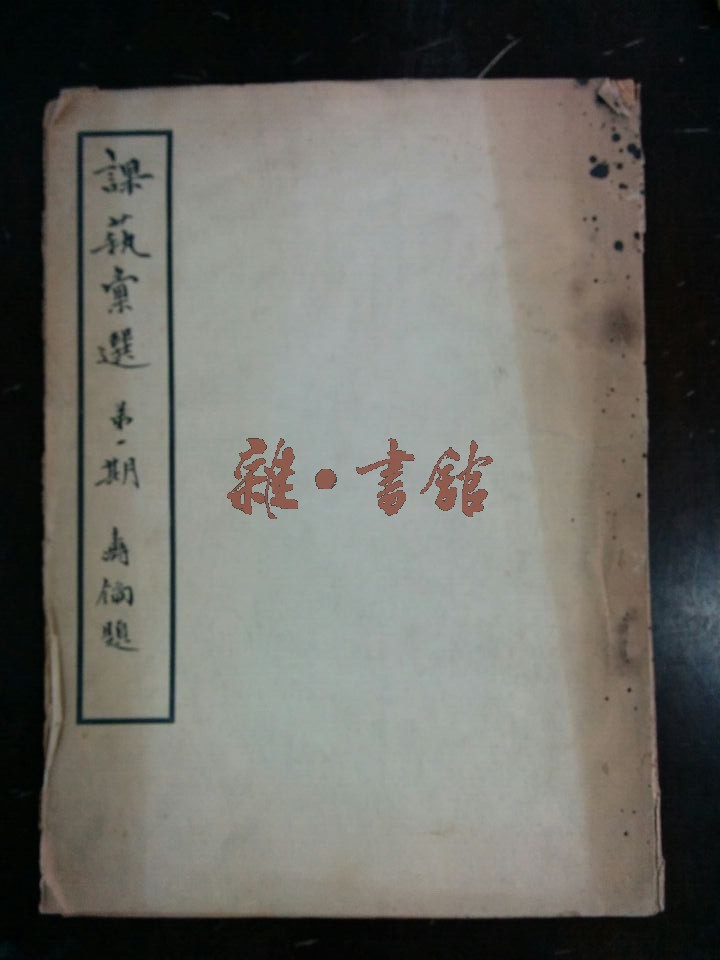 課藝彙選 第一期 壽倫題
雜·書館